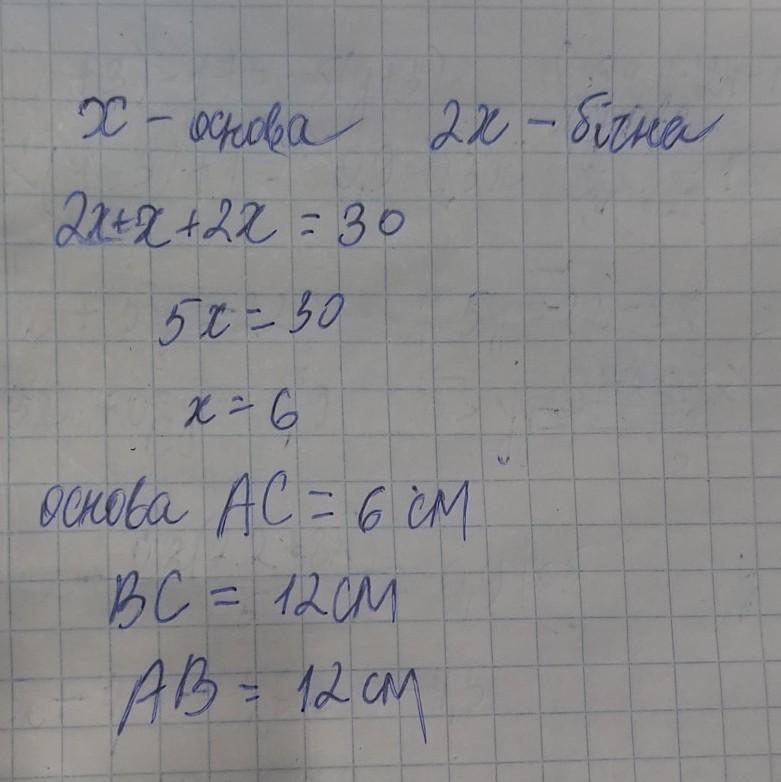 x - основа 2x - бічна
2x+x+2x = 30
5x = 30
x = 6
основа AC = 6 см
BC = 12 см
AB = 12 см